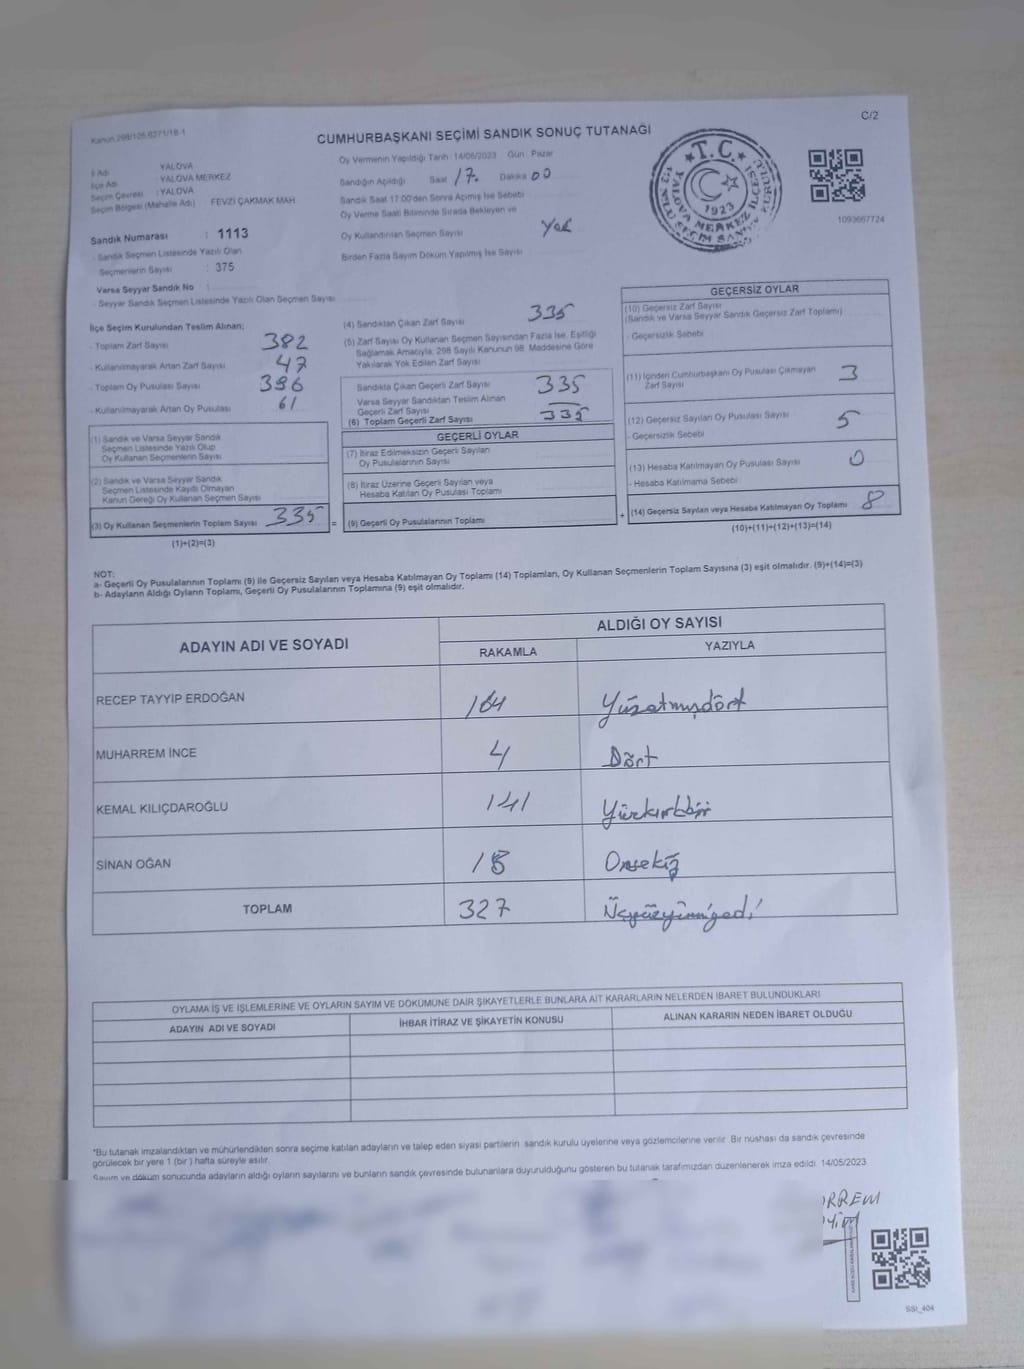 C/2
Kanun 298/105,6271/18-1
CUMHURBAŞKANI SEÇİMİ SANDIK SONUÇ TUTANAĞI
İl Adı YALOVA
İlçe Adı YALOVA MERKEZ
Seçim Çevresi : YALOVA
Seçim Bölgesi (Mahalle Adı) FEVZİ ÇAKMAK MAH
Sandık Numarası : 1113
- Sandık Seçmen Listesinde Yazılı Olan
Seçmenlerin Sayısı : 375
Varsa Seyyar Sandık No
- Seyyar Sandık Seçmen Listesinde Yazılı Olan Seçmen Sayısı
Oy Vermenin Yapıldığı Tarih :14/05/2023 Gün : Pazar
Sandığın Açıldığı Saat 17. Dakika 00
Sandık Saat 17:00'den Sonra Açılmış İse Sebebi
Oy Verme Saati Bitiminde Sırada Bekleyen ve
Oy Kullandırılan Seçmen Sayısı Yok
Birden Fazla Sayım Döküm Yapılmış İse Sayısı
T.C.
YALOVA MERKEZ İLÇESİ
1923
1093667724
İlçe Seçim Kurulundan Teslim Alınan;
- Toplam Zarf Sayısı 382
- Kullanılmayarak Artan Zarf Sayısı 47
- Toplam Oy Pusulası Sayısı 396
- Kullanılmayarak Artan Oy Pusulası 61
(1) Sandık ve Varsa Seyyar Sandık
Seçmen Listesinde Yazılı Olup
Oy Kullanan Seçmenlerin Sayısı
(2) Sandık ve Varsa Seyyar Sandık
Seçmen Listesinde Kayıtlı Olmayan
Kanun Gereği Oy Kullanan Seçmen Sayısı
(3) Oy Kullanan Seçmenlerin Toplam Sayısı 335
(1)+(2)=(3)
=
(4) Sandıktan Çıkan Zarf Sayısı 335
(5) Zarf Sayısı Oy Kullanan Seçmen Sayısından Fazla İse, Eşitliği
Sağlamak Amacıyla, 298 Sayılı Kanunun 98. Maddesine Göre
Yakılarak Yok Edilen Zarf Sayısı
Sandıkta Çıkan Geçerli Zarf Sayısı 335
Varsa Seyyar Sandıktan Teslim Alınan
Geçerli Zarf Sayısı
(6) Toplam Geçerli Zarf Sayısı 335
GEÇERLİ OYLAR
(7) İtiraz Edilmeksizin Geçerli Sayılan
Oy Pusulalarının Sayısı
(8) İtiraz Üzerine Geçerli Sayılan veya
Hesaba Katılan Oy Pusulası Toplamı
(9) Geçerli Oy Pusulalarının Toplamı
+
GEÇERSİZ OYLAR
(10) Geçersiz Zarf Sayısı
(Sandık ve Varsa Seyyar Sandık Geçersiz Zarf Toplamı)
- Geçersizlik Sebebi
(11) İçinden Cumhurbaşkanı Oy Pusulası Çıkmayan
Zarf Sayısı 3
(12) Geçersiz Sayılan Oy Pusulası Sayısı 5
- Geçersizlik Sebebi
(13) Hesaba Katılmayan Oy Pusulası Sayısı 0
- Hesaba Katılmama Sebebi
(14) Geçersiz Sayılan veya Hesaba Katılmayan Oy Toplamı 8
(10)+(11)+(12)+(13)=(14)
NOT:
a- Geçerli Oy Pusulalarının Toplamı (9) ile Geçersiz Sayılan veya Hesaba Katılmayan Oy Toplamı (14) Toplamları, Oy Kullanan Seçmenlerin Toplam Sayısına (3) eşit olmalıdır. (9)+(14)=(3)
b- Adayların Aldığı Oyların Toplamı, Geçerli Oy Pusulalarının Toplamına (9) eşit olmalıdır.
ADAYIN ADI VE SOYADI
ALDIĞI OY SAYISI
RAKAMLA YAZIYLA
RECEP TAYYİP ERDOĞAN 164 Yüzatmışdört
MUHARREM İNCE 4 Dört
KEMAL KILIÇDAROĞLU 141 Yüzkırkbir
SİNAN OĞAN 18 Onsekiz
TOPLAM 327 Üçyüzyirmiyedi
OYLAMA İŞ VE İŞLEMLERİNE VE OYLARIN SAYIM VE DÖKÜMÜNE DAİR ŞİKAYETLERLE BUNLARA AİT KARARLARIN NELERDEN İBARET BULUNDUKLARI
ADAYIN ADI VE SOYADI İHBAR İTİRAZ VE ŞİKAYETİN KONUSU ALINAN KARARIN NEDEN İBARET OLDUĞU
*Bu tutanak imzalandıktan ve mühürlendikten sonra seçime katılan adayların ve talep eden siyasi partilerin sandık kurulu üyelerine veya gözlemcilerine verilir. Bir nüshası da sandık çevresinde
görülecek bir yere 1 (bir) hafta süreyle asılır.
Sayım ve döküm sonucunda adayların aldığı oyların sayılarını ve bunların sandık çevresinde bulunanlara duyurulduğunu gösteren bu tutanak tarafımızdan düzenlenerek imza edildi. 14/05/2023
RREM
SSI_404